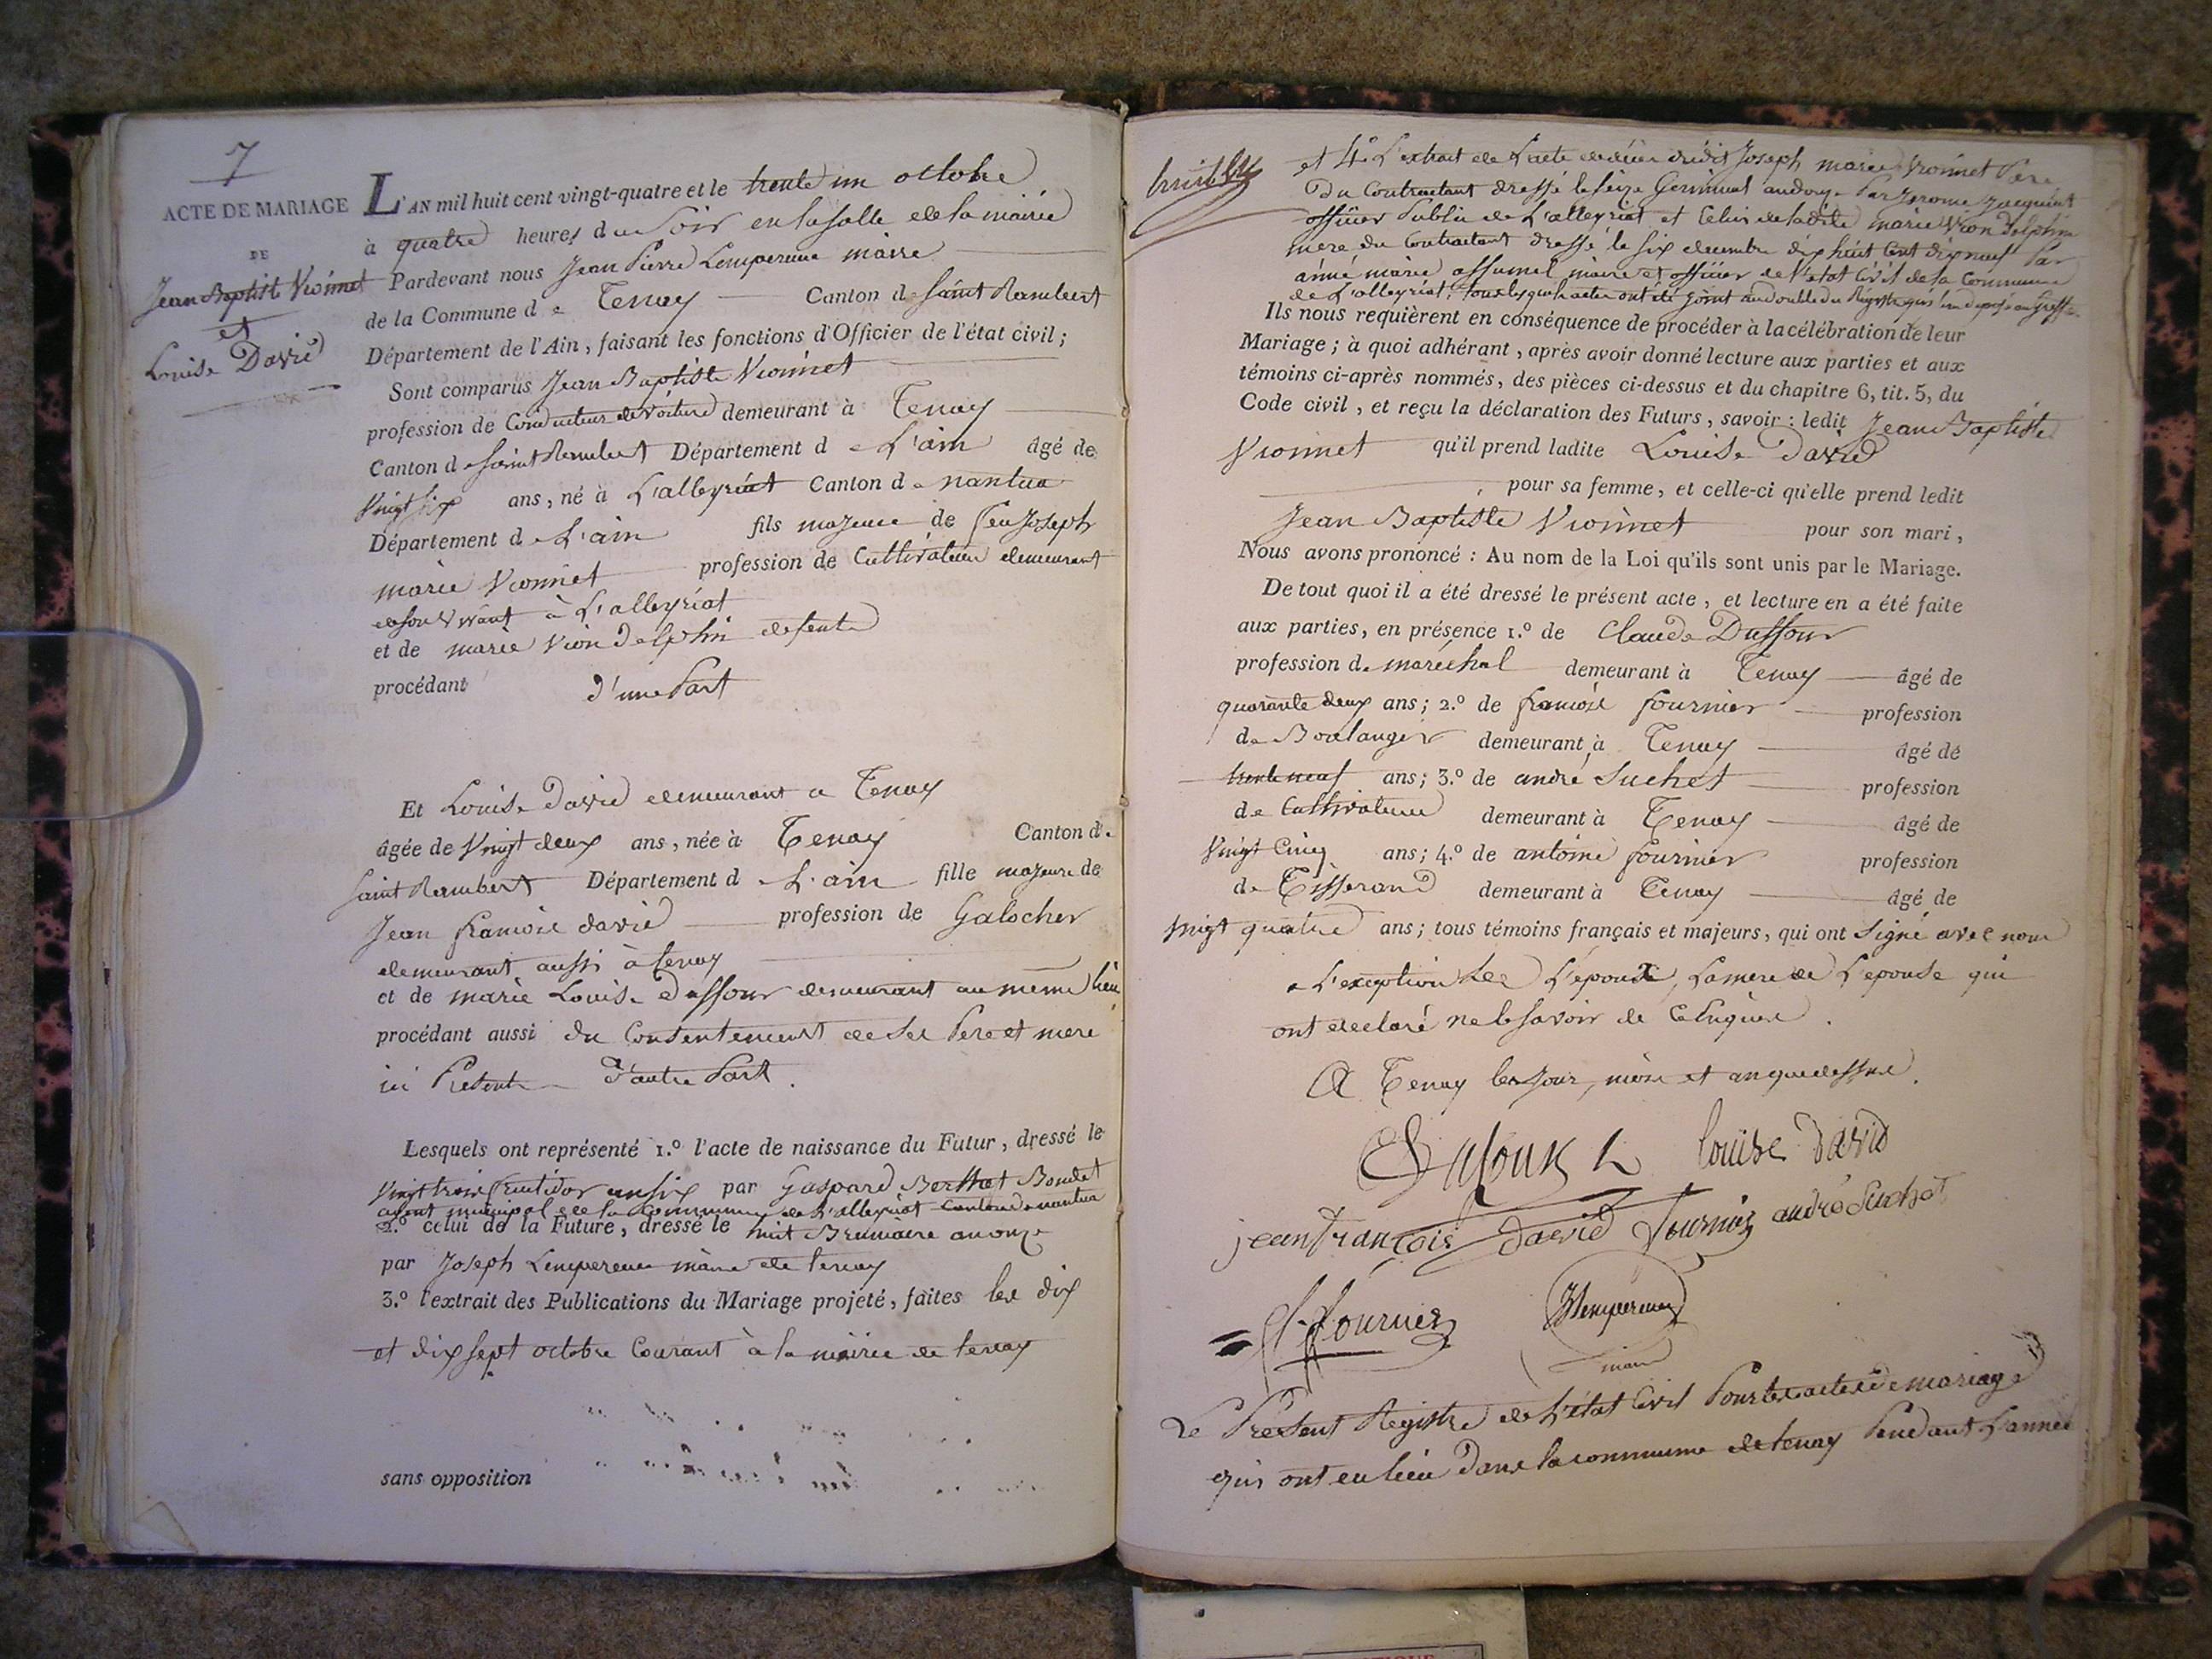 7
ACTE DE MARIAGE
DE
Jean Baptist Vionnet
et
Louise David
L'AN mil huit cent vingt-quatre et le trente un octobre
à quatre heures du Soir en la salle de la mairie
Pardevant nous Jean Pierre Lempereur maire
de la Commune de Tenay Canton de Saint Rambert
Département de l'Ain, faisant les fonctions d'Officier de l'état civil;
Sont comparus Jean Baptiste Vionnet
profession de Conducteur de voiture demeurant à Tenay
Canton de Saint Rambert Département de L'ain âgé de
Vingt six ans, né à L'alleyriat Canton de nantua
Département de L'ain fils majeur de feu Joseph
marie Vionnet profession de Cultivateur demeurant
de son vivant à L'alleyriat
et de marie Vion Delphin defunte
procédant d'une Part
Et Louise David demeurant a Tenay
âgée de Vingt deux ans, née à Tenay Canton de
Saint Rambert Département de L'ain fille majeure de
Jean francois david profession de Galocher
demeurant aussi à tenay
et de marie Louise duffour demeurant au même lieu
procédant aussi du Consentement de ses Pere et mere
ici Presents D'autre Part.
Lesquels ont représenté 1.º l'acte de naissance du Futur, dressé le
Vingt trois fructidor an six par Gaspard Berthet Bondet
agent municipal de la Commune de L'alleyriat Canton de nantua
2.º celui de la Future, dressé le huit Brumaire an onze
par Joseph Lempereur maire de tenay
3.º l'extrait des Publications du Mariage projeté, faites les dix
et dix sept octobre Courant à la mairie de tenay
sans opposition
et 4º L'extrait de L'acte de décès dudit Joseph marie Vionnet Pere
Du Contractant dressé le seize Germinal an douze Par Jerome Jacquint
officier Public de L'alleyriat et Celui de ladite marie Vion Delphin
mere du Contractant dressé le six decembre dix huit Cent dix neuf Par
aimé marie maire et officier de l'état Civil de la Commune
de L'alleyriat, tous lesquels actes ont été joint au double du Registre qui sera deposé au Greffe.
Ils nous requièrent en conséquence de procéder à la célébration de leur
Mariage; à quoi adhérant, après avoir donné lecture aux parties et aux
témoins ci-après nommés, des pièces ci-dessus et du chapitre 6, tit. 5, du
Code civil, et reçu la déclaration des Futurs, savoir: ledit Jean Baptiste
Vionnet qu'il prend ladite Louise David
, pour sa femme, et celle-ci qu'elle prend ledit
Jean Baptiste Vionnet pour son mari,
Nous avons prononcé: Au nom de la Loi qu'ils sont unis par le Mariage.
De tout quoi il a été dressé le présent acte, et lecture en a été faite
aux parties, en présence 1.º de Claude Duffour
profession de maréchal demeurant à Tenay âgé de
quarante deux ans; 2.º de francois fournier profession
de Boulanger demeurant à Tenay âgé de
trente neuf ans; 3.º de andré Suchet profession
de Cultivateur demeurant à Tenay âgé de
Vingt Cinq ans; 4.º de antoine fournier profession
de Tisserand demeurant à Tenay âgé de
Vingt quatre ans; tous témoins français et majeurs, qui ont Signé avec nous
a L'exception de L'epoux, La mere de L'epouse qui
ont declaré ne le savoir de Ce Requis.
A Tenay les Jour, mois et an que dessus.
Dufour louise David
jean françois david fournier andré Suchet
fournier Lempereur
maire
Le Present Registre de L'état Civil Pour les actes de mariage
qui ont eu lieu Dans la commune de tenay Pendant L'année